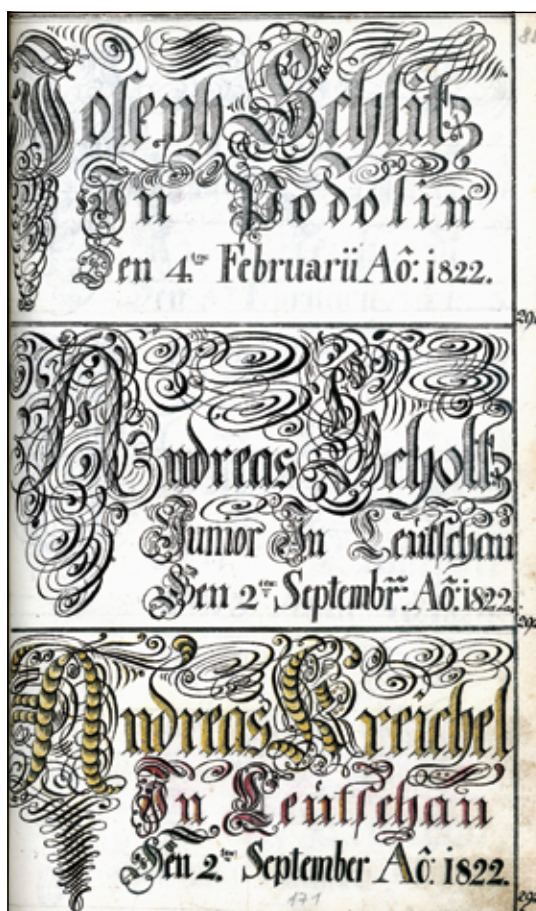 Joseph Schlitz
In Podolin
Den 4.ten Februarii Aô: 1822.
Andreas Scholtz
Junior In Leütschau
Den 2.ten Septembr̃: Aô: 1822.
Andreas Kreichel
In Leütschau
Den 2.ten September Aô: 1822.
171